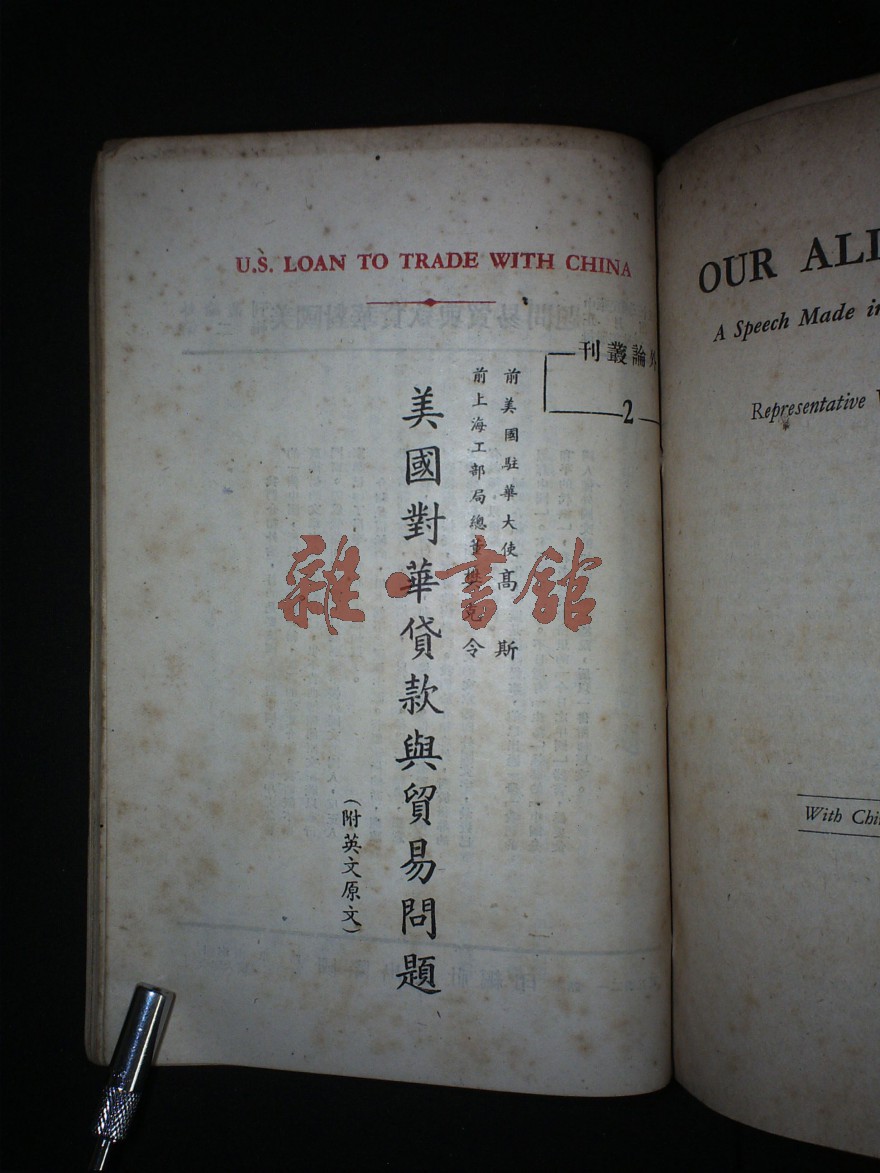 U.S. LOAN TO TRADE WITH CHINA
外論叢刊
2
前美國駐華大使高斯
前上海工部局總董樊克令
美國對華貸款與貿易問題
(附英文原文)
雜·書館
OUR
A Speech Made
Representative
With